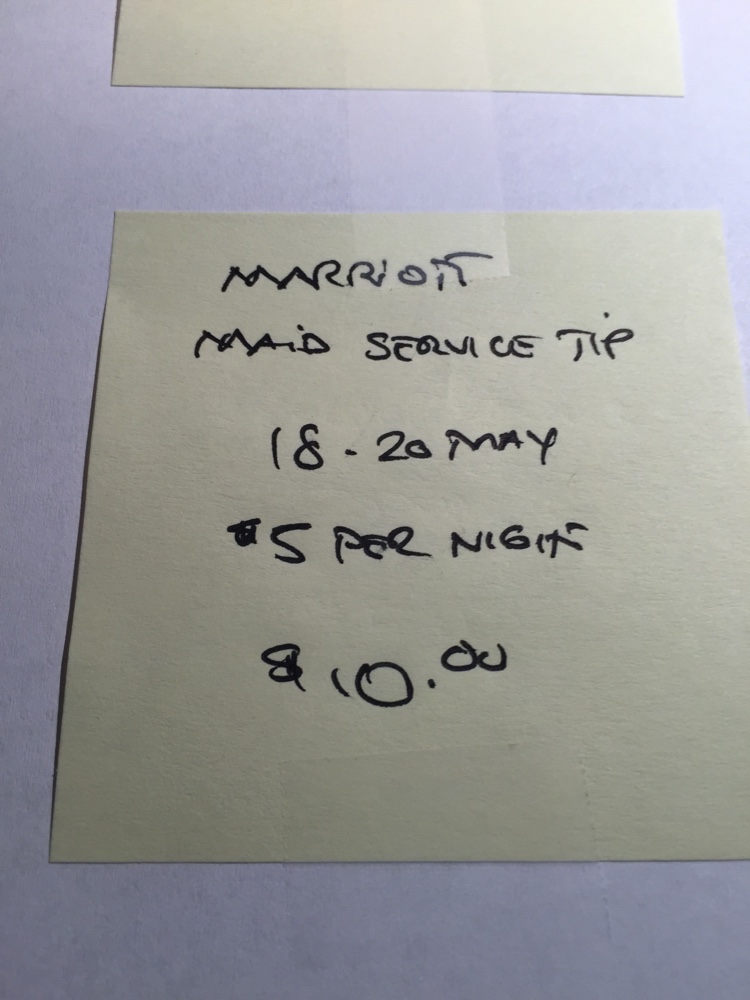 MARRIOTT
MAiD SERVICE TiP
18 - 20 MAY
$5 PER NIGHT
$10.00